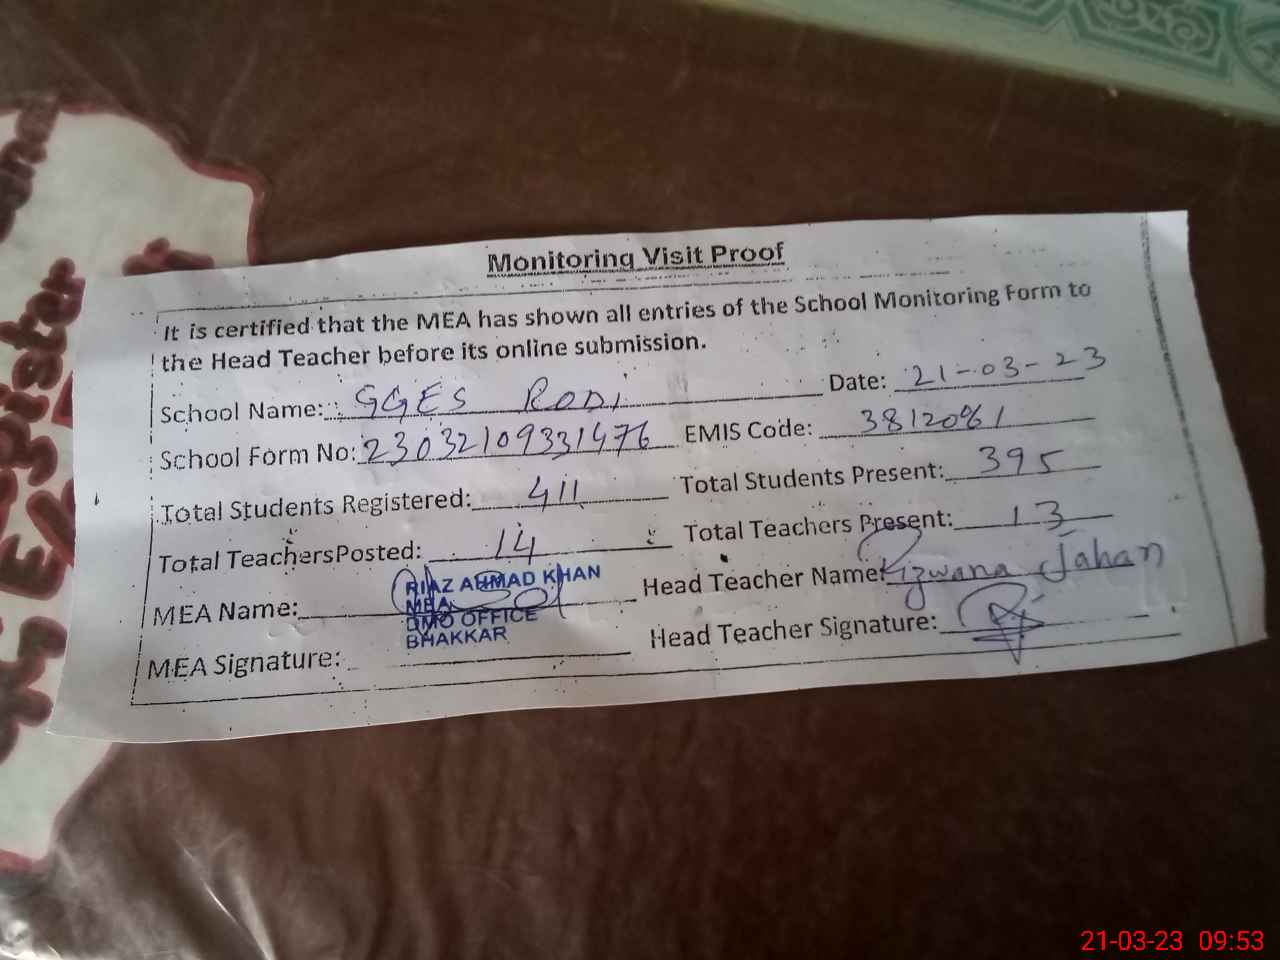 Monitoring Visit Proof
It is certified that the MEA has shown all entries of the School Monitoring Form to
the Head Teacher before its online submission.
School Name: GGES RODI Date: 21-03-23
School Form No: 23032109331476 EMIS Code: 38120961
Total Students Registered: 411 Total Students Present: 395
Total TeachersPosted: 14 Total Teachers Present: 13
MEA Name: RIAZ AHMAD KHAN Head Teacher Name: Rizwana Jahan
MEA
DMO OFFICE
BHAKKAR
MEA Signature: Head Teacher Signature:
21-03-23 09:53